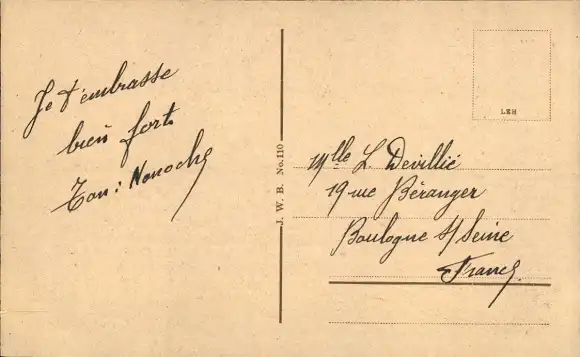 Je t'embrasse
bien fort
Ton: Nonoche
J. W. B. No. 110
LEH
Mlle L Devillié
19 rue Béranger
Boulogne s/ Seine
France